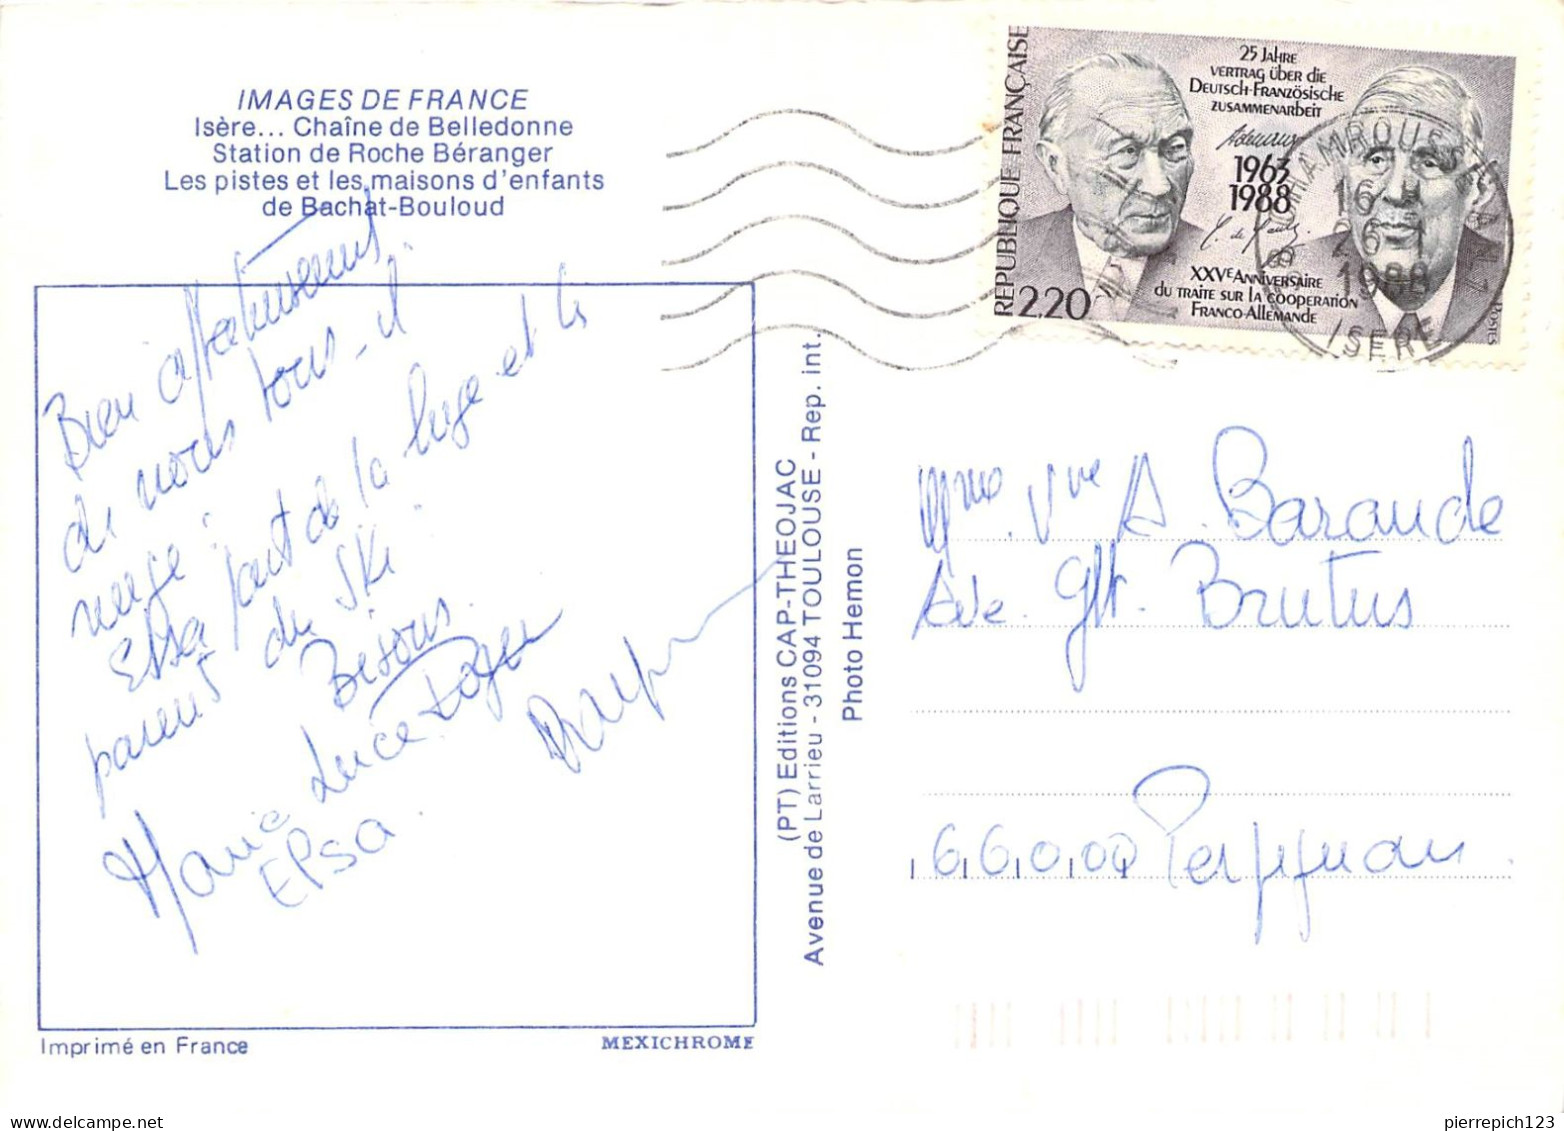 IMAGES DE FRANCE
Isère... Chaîne de Belledonne
Station de Roche Béranger
Les pistes et les maisons d'enfants
de Bachat-Bouloud
Bien affectueusement
de nous tous - il
neige !
Elsa fait de la luge et les
parents du ski
Bisous
Marie Luce Roger
Elsa
Imprimé en France
MEXICHROME
(PT) Editions CAP-THEOJAC
Avenue de Larrieu - 31094 TOULOUSE - Rep. int.
Photo Hemon
REPUBLIQUE FRANÇAISE
25 Jahre
Vertrag über die
Deutsch-Französische
Zusammenarbeit
Adenauer
1963
1988
C. de Gaulle
XXVe Anniversaire
du traite sur la cooperation
Franco-Allemande
2.20
Postes
CHAMROUSSE
16 H
26-1
1988
ISERE
Mme Vve A. Barande
Ave. Glt. Brutus
66000 Perpignan
pierrepich123